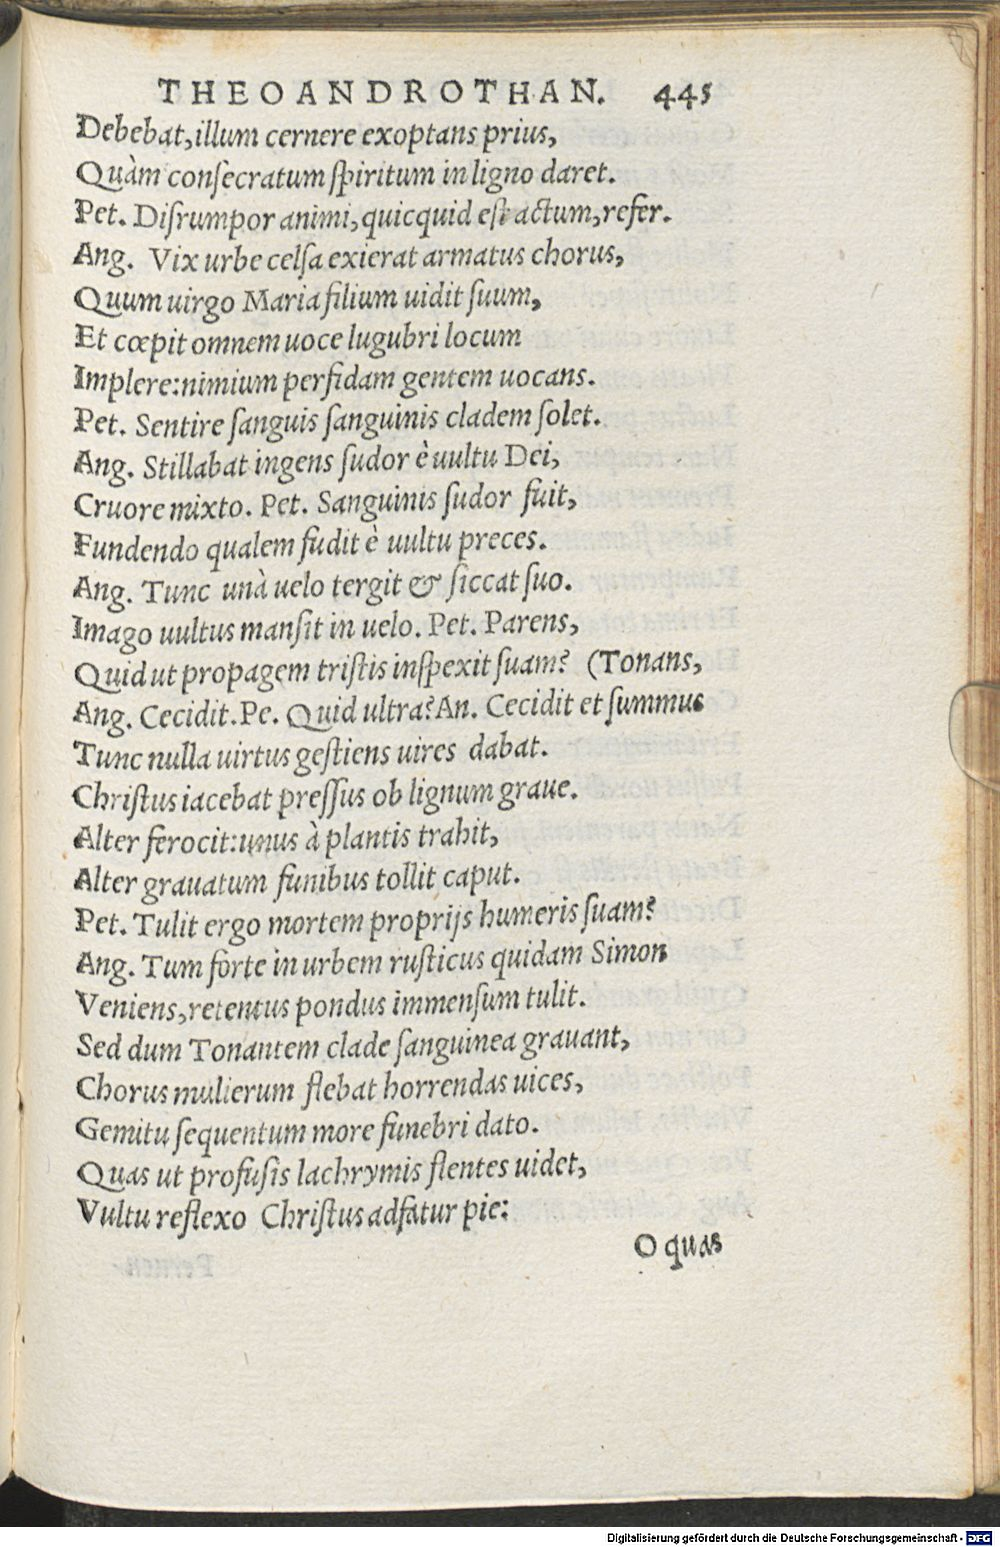 THEOANDROTHAN. 445
Debebat, illum cernere exoptans prius,
Quàm consecratum spiritum in ligno daret.
Pet. Disrumpor animi, quicquid est actum, refer.
Ang. Vix urbe celsa exierat armatus chorus,
Quum uirgo Maria filium uidit suum,
Et cœpit omnem uoce lugubri locum
Implere: nimium perfidam gentem uocans.
Pet. Sentire sanguis sanguinis cladem solet.
Ang. Stillabat ingens sudor è uultu Dei,
Cruore mixto. Pet. Sanguinis sudor fuit,
Fundendo qualem fudit è uultu preces.
Ang. Tunc unà uelo tergit & siccat suo.
Imago uultus mansit in uelo. Pet. Parens,
Quid ut propagem tristis inspexit suam? (Tonans,
Ang. Cecidit. Pe. Quid ultra? An. Cecidit et summus
Tunc nulla uirtus gestiens uires dabat.
Christus iacebat pressus ob lignum graue.
Alter ferocit: unus à plantis trahit,
Alter grauatum funibus tollit caput.
Pet. Tulit ergo mortem proprijs humeris suam?
Ang. Tum forte in urbem rusticus quidam Simon
Veniens, retentus pondus immensum tulit.
Sed dum Tonantem clade sanguinea grauant,
Chorus mulierum flebat horrendas uices,
Gemitu sequentum more funebri dato.
Quas ut profusis lachrymis flentes uidet,
Vultu reflexo Christus adfatur pie:
O quas
Digitalisierung gefördert durch die Deutsche Forschungsgemeinschaft - DFG